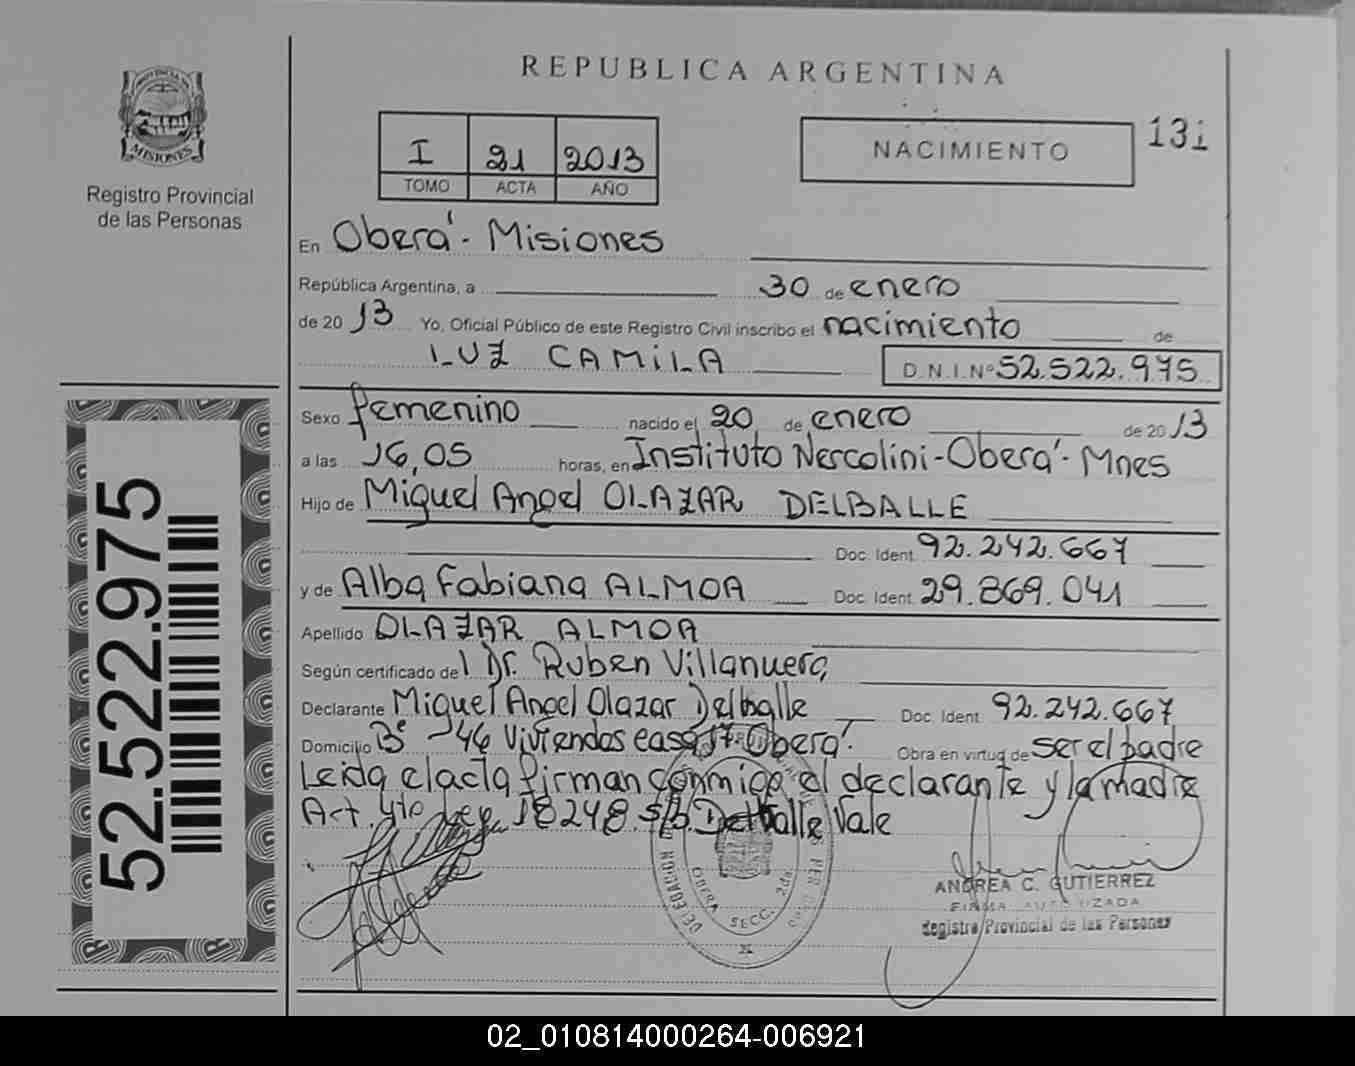 REPUBLICA ARGENTINA
PROVINCIA DE
MISIONES
Registro Provincial
de las Personas
I 21 2013
TOMO ACTA AÑO
NACIMIENTO
131
En Oberá - Misiones
República Argentina, a 30 de enero
de 20 13 Yo, Oficial Público de este Registro Civil inscribo el nacimiento de
LUZ CAMILA D.N.I.Nº 52.522.975
Sexo femenino nacido el 20 de enero de 20 13
a las 16,05 horas, en Instituto Nercolini - Oberá - Mnes
Hijo de Miguel Angel OLAZAR DELBALLE
Doc. Ident. 92.242.667
y de Alba Fabiana ALMOA Doc. Ident. 29.869.041
Apellido OLAZAR ALMOA
Según certificado del Dr. Ruben Villanueva
Declarante Miguel Angel Olazar Delballe Doc. Ident. 92.242.667
Domicilio Bº 46 Viviendas casa 17- Oberá. Obra en virtud de ser el padre
Leida el acta firman conmigo el declarante y la madre
Art. 4to Ley 18248. s/b. Delballe Vale
52.522.975
DELEGACION
OBERA SECC. 2da.
ANDREA C. GUTIERREZ
FIRMA AUTORIZADA
Registro Provincial de las Personas
02_010814000264-006921